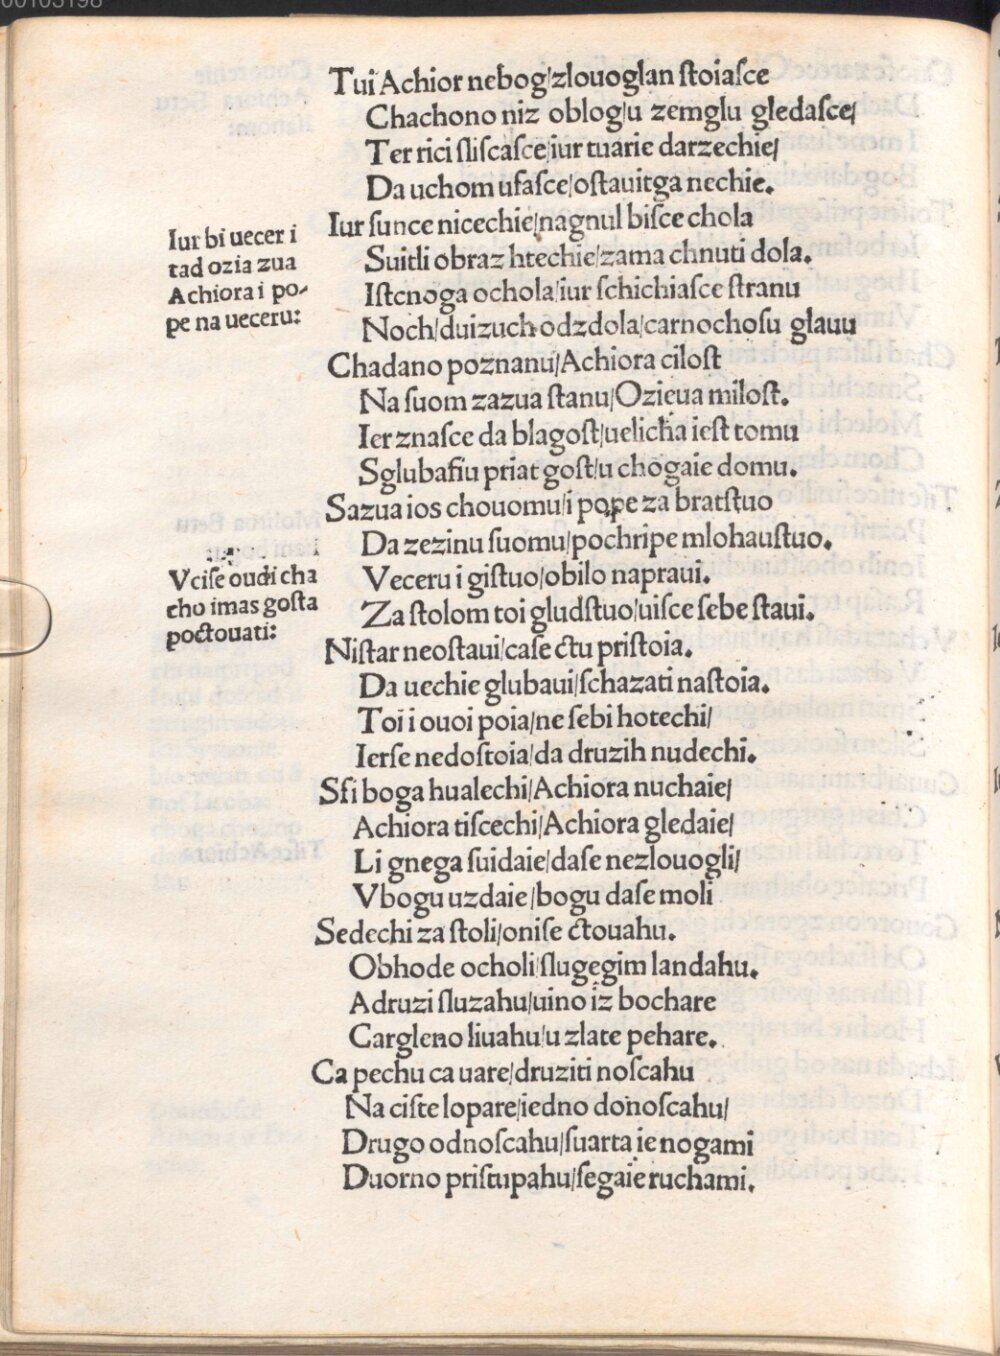 00103198
Tui Achior nebog/zlouoglan ſtoiaſce
Chachono niz oblog/u zemglu gledaſce/
Ter rici ſliſcaſce/iur tuarie darzechie/
Da uchom ufaſce/oſtauitga nechie.
Iur ſunce nicechie/nagnul biſce chola
Suitli obraz htechie/zama chnuti dola.
Iſtcnoga ochola/iur ſchichiaſce ſtranu
Noch/duizuch odzdola/carnochoſu glauu
Iur bi uecer i
tad ozia zua
Achiora i po-
pe na ueceru:
Chadano poznanu/Achiora ciloſt
Na ſuom zazua ſtanu/Ozieua miloſt.
Ier znaſce da blagoſt/uelicha ieſt tomu
Sglubaſiu priat goſt/u chogaie domu.
Sazua ios chouomu/i pope za bratſtuo
Da zezinu ſuomu/pochripe mlohauſtuo.
Veceru i giſtuo/obilo napraui.
Za ſtolom toi gludſtuo/uiſce ſebe ſtaui.
Vciſe oudi cha
cho imas goſta
poctouati:
Niſtar neoſtaui/caſe ctu priſtoia.
Da uechie glubaui/ſchazati naſtoia.
Toi i ouoi poia/ne ſebi hotechi/
Ierſe nedoſtoia/da druzih nudechi.
Sfi boga hualechi/Achiora nuchaie/
Achiora tiſcechi/Achiora gledaie/
Li gnega ſuidaie/daſe nezlouogli/
Vbogu uzdaie/bogu daſe moli
Sedechi za ſtoli/oniſe ctouahu.
Obhode ocholi/ſlugegim landahu.
Adruzi ſluzahu/uino iz bochare
Cargleno liuahu/u zlate pehare.
Ca pechu ca uare/druziti noſcahu
Na ciſte lopare/iedno donoſcahu/
Drugo odnoſcahu/ſuarta ie nogami
Duorno priſtupahu/ſegaie ruchami.